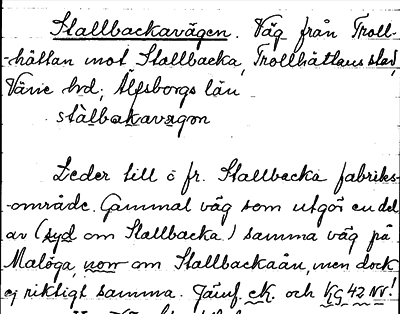 Stallbackavägen. Väg från Troll-
-hättan mot Stallbacka, Trollhättans stad,
Väne hd, Älfsborgs län
stálbakavagon
Leder till ö fr. Stallbacka fabriks-
-område. Gammal väg som utgör en del
av (syd om Stallbacka) samma väg på
Malöga, norr om Stallbackaån, men dock
ej riktigt samma. Jämf. ek. och